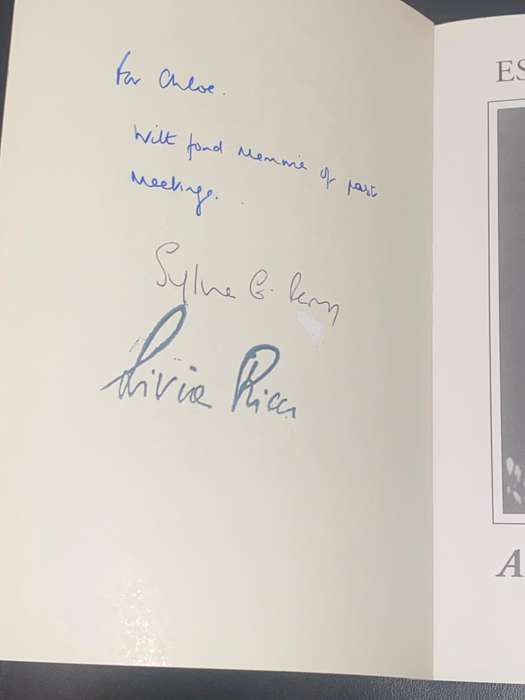 For Chloe.
With fond Memories of past
Meetings.
Sylvia G.
Livia Ricci
ES
A